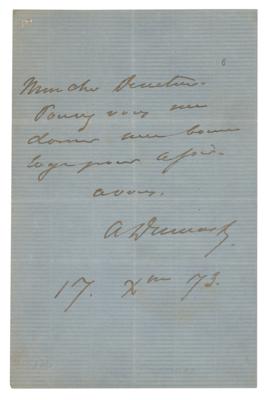 Mon cher Directeur.
Pouvez vous me
donner une bonne
loge pour
a vous.
A Dumas f.
17. Xbre 73.